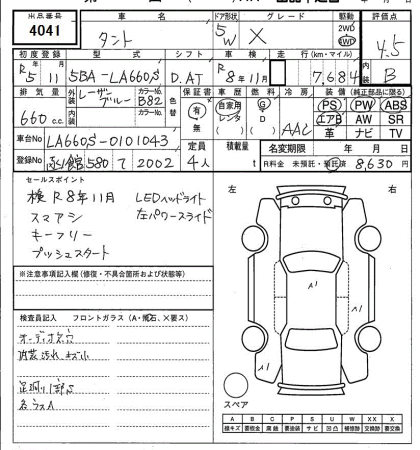 出品番号 車名 ドア形状 グレード 駆動 評価点
4041 タント 5W X 2WD 4WD 4.5
初度登録 型式 シフト 車検 走行(km・マイル) 内装
R5 11月 5BA-LA660S D.AT R8年11月 7,684 B
排気量 外装 レーザーブルー カラーNo. B82 色替 保証書 車歴 燃料 冷房 装備(純正部品に限る)
660 c.c. 内装 カラーNo. 有 無 自家用 レンタ G D AAC PS PW ABS
エアB AW SR
革 ナビ TV
車台No LA660S-0101043 定員 積載量 名変期限 年 月 日
登録No 580 て 2002 4人 t R料金 未預託・預託済 8,630 円
セールスポイント
検 R8年11月 LEDヘッドライト
スマアシ 左パワースライド
キーフリー
プッシュスタート
左 右
※注意事項記入欄(修復・不具合箇所および状態等)
検査員記入 フロントガラス(A・飛石、X要ス)
内装汚れ キズ小
A1
A1
A1
スペア
A B C P S U W X XX X
線キズ 要板金 腐蝕 要塗装 サビ 凹凸 補修跡 交換跡 要交換